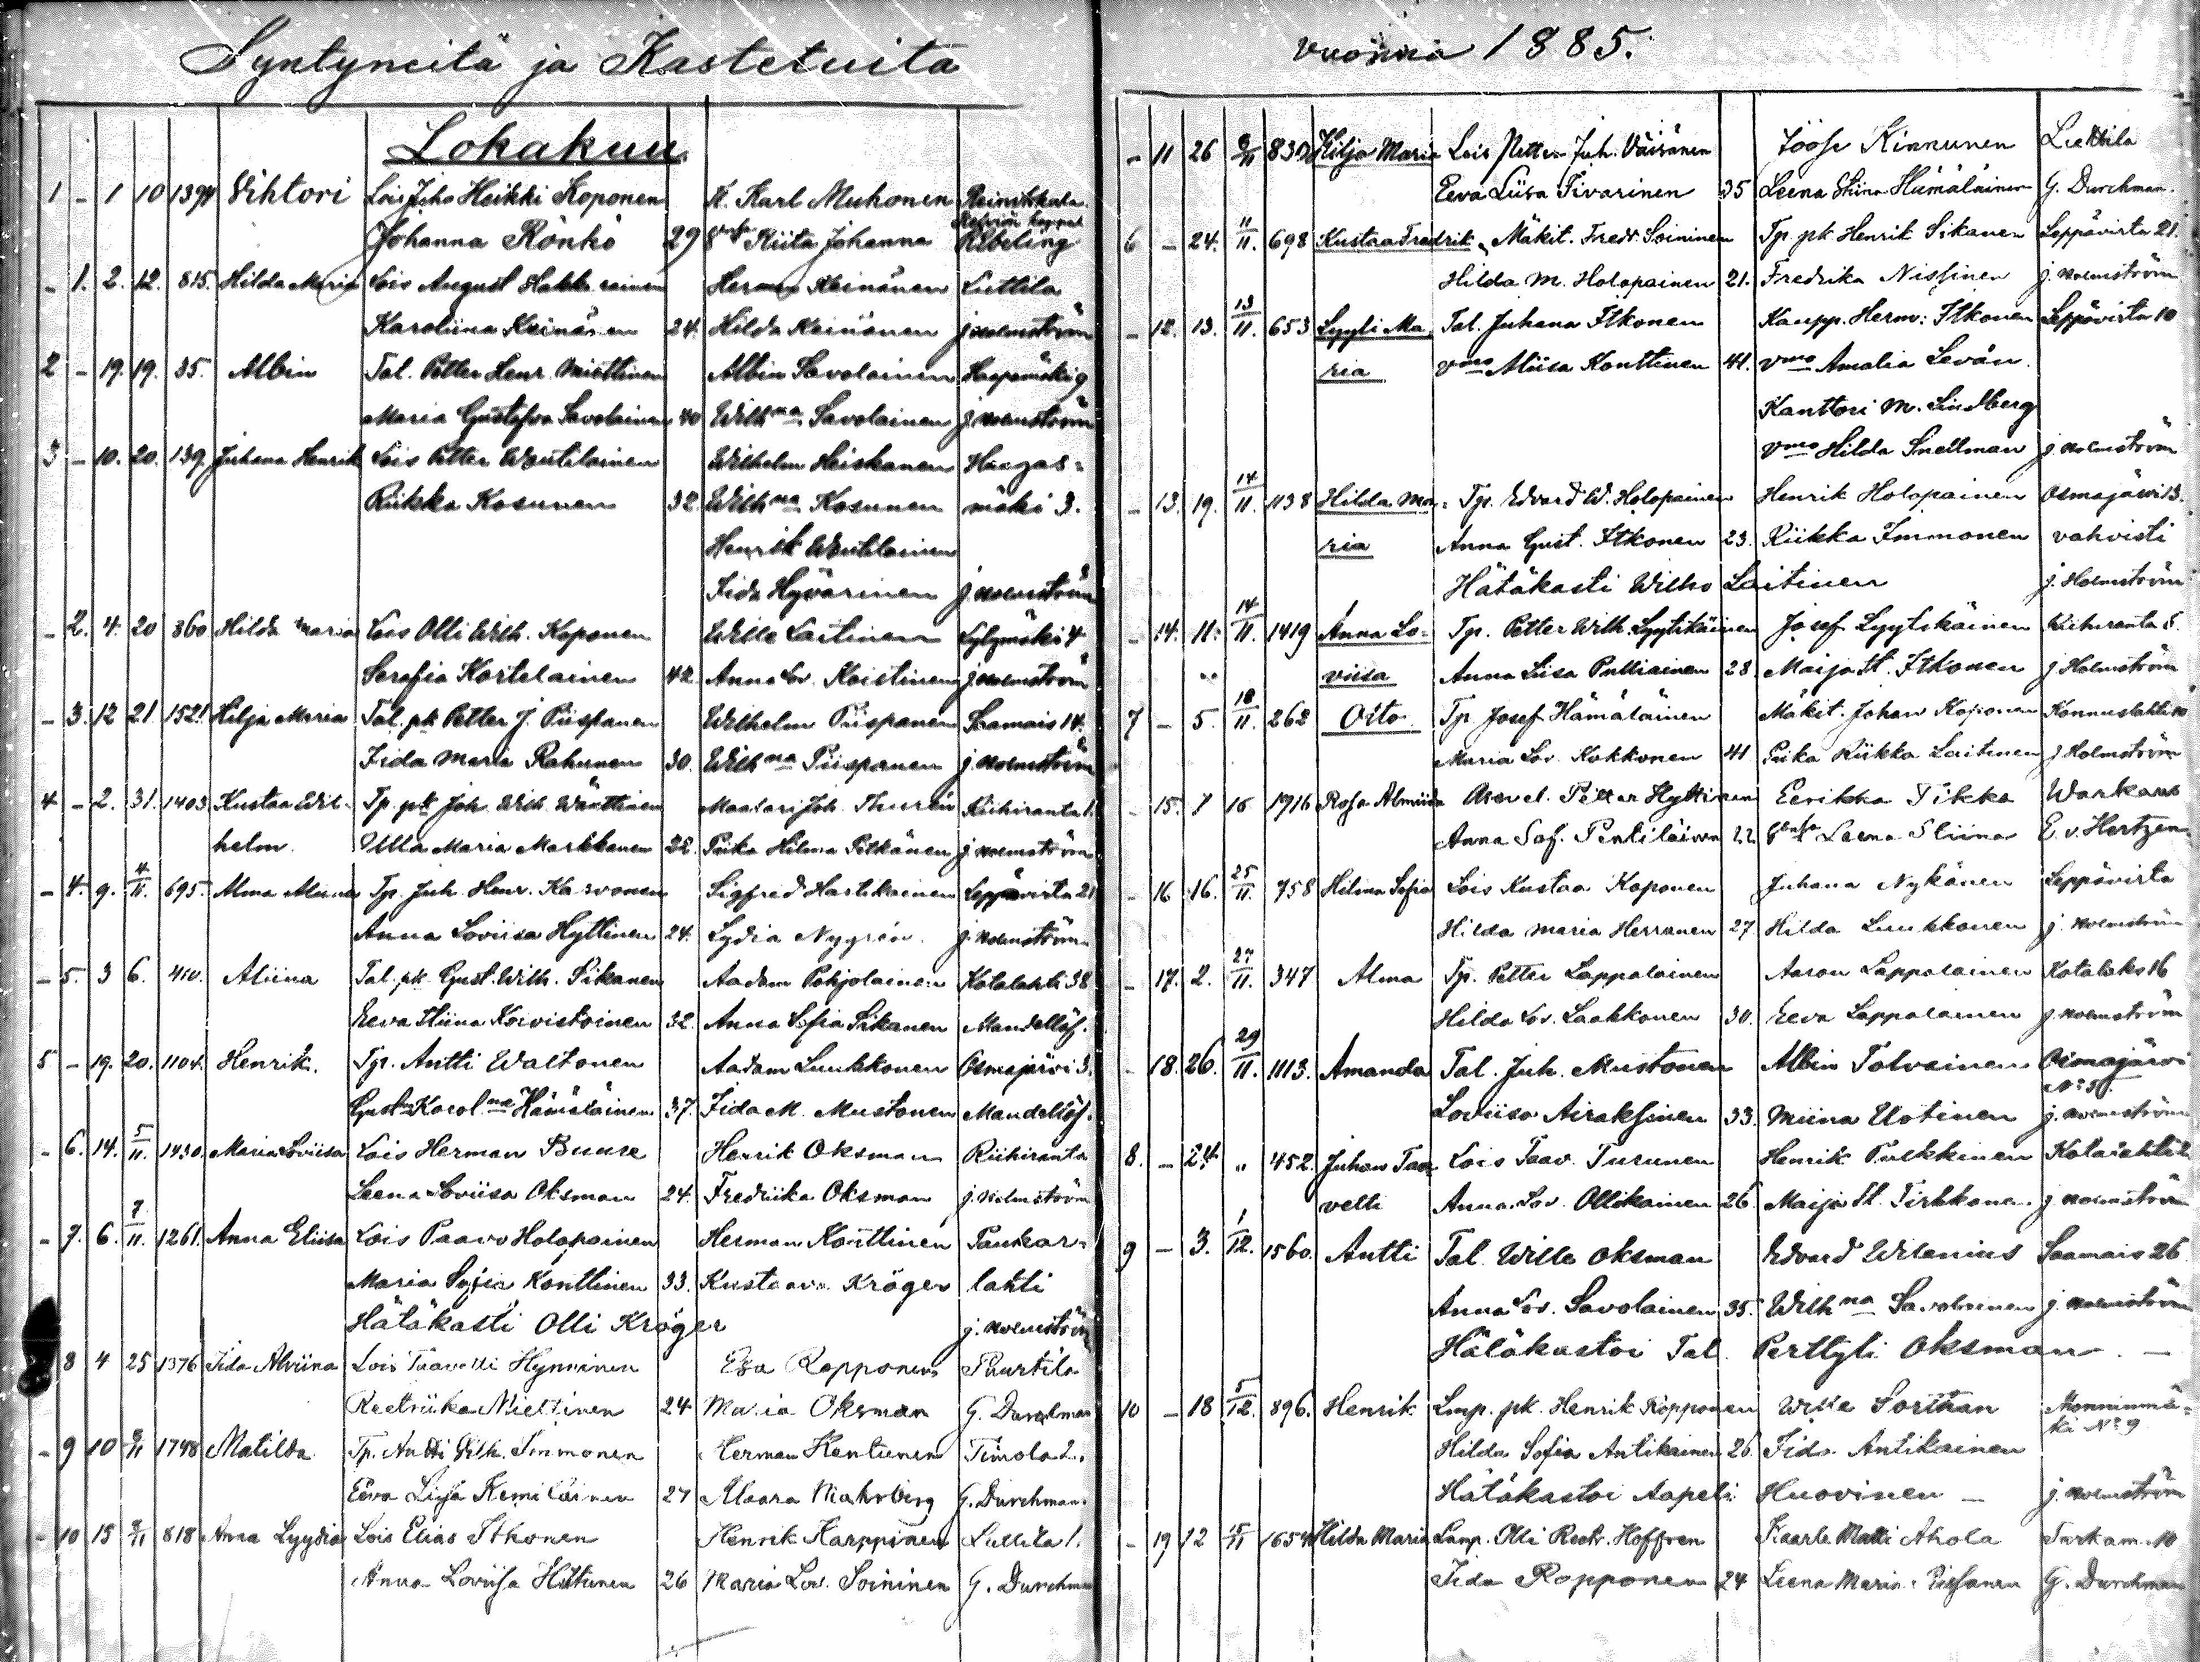 Syntyneitä ja Kastetuita
Lokakuu
1 - 1 10 Vihtori Lois Juho Heikki Koponen K. Karl Muhonen
Johanna Rönkö 29 Kiita Johanna Rebeling
- 1. 2. 12. 815. Hilda Maria Lois August Herman Keinänen Luttila
Karoliina Keinänen 24. Hilda Keinänen j. Holmström
2 - 19. 19. 35. Albin Tal. Petter Henr. Miettinen Albin Savolainen Haapamäki 9
Maria Gustafva Savolainen 40 Wilh na Savolainen j. Holmström
3 - 10. 20. 139. Juhana Henrik Lois Petter Wentilainen Wilhelm Heiskanen Haapas-
Riikka Kosunen 32. Wilh na Kosunen mäki 3.
Henrik Wentilainen
Fida Hyvärinen j. Holmström
- 2. 4. 20 360 Hilda Maria Lois Olli Wilh. Koponen Wille Laitinen 4
Serafia Kortelainen 42 Anna Lov. Koistinen j. Holmström
- 3. 12 21. 1521. Hilja Maria Tal. pk Petter J. Piispanen Wilhelm Piispanen Saamais 14.
Fida Maria Rahunen 30. Wilh na Piispanen j. Holmström
4 - 2. 31. 1403 Kustaa Wil- Tp. pk Joh. Wilh. Wänttinen Maalari Joh. Thurén Riihiranta 1.
helm. Ulla Maria Markkanen 22. Piika Hilma Pitkänen j. Holmström
- 4. 9. 4/11. 695. Alma Miina Tp. Juh. Henr. Karvonen Sigfred Hartikainen Leppävirta 21
Anna Loviisa Hyttinen 24. Lydia Nygrén. j. Holmström
- 5. 3 6. 410. Aliina Tal. pk. Gust. Wilh. Sikanen Aadam Pohjolainen Kotalahti 38
Eeva Stiina Koivistoinen 32. Anna Sofia Sikanen Mandellöf.
5 - 19. 20. 1104. Henrik. Tp. Antti Waltonen Aadam Luukkonen Osmajärvi 3.
Gust. Karol na Hämäläinen 37. Fida M. Mustonen Mandellöf.
- 6. 14. 5/11. 1430. Maria Loviisa Lois Herman Buure Henrik Oksman Riihiranta
Leena Loviisa Oksman 24. Fredriika Oksman j. Holmström
- 7. 6. 7/11. 1261. Anna Eliisa Lois Paavo Holopainen Herman Konttinen Paukar-
Maria Sofia Konttinen 33. Kustaava Kröger lahti
Hätäkasti Olli Kröger j. Holmström
8 4 25 1376 Fida Alviina Lois Taavetti Hynninen Esa Ropponen Puurtila
Reetriika Miettinen 24 Maria Oksman G. Durchman
- 9 10 8/11 1798 Matilda Tp. Antti Wilh. Immonen Herman Kontunen Timola 2.
Eeva Liisa Kemiläinen 27 Alaara Mahrberg G. Durchman.
- 10 15 8/11 818 Anna Lyydia Lois Elias Itkonen Henrik Karppinen Luttila 1.
Anna Loviisa Hiltunen 26 Maria Lov. Soininen G. Durchman
vuonna 1885.
- 11 26 8/11 Hilja Maria Lois Petter Juh. Väisänen Jöose Kinnunen Luttila
Eeva Liisa Tivarinen 35 Leena Stiina Hämäläinen G. Durchman.
6 - 24. 11/11. 698 Kustaa Fredrik Mäkit. Fredr. Soininen Tp. pk Henrik Sikanen Leppävirta 21.
Hilda M. Holopainen 21. Fredrika Nissinen j. Holmström
- 12. 13. 13/11. 653 Lyyli Ma- Tal. Juhana Itkonen Kaupp. Herm: Itkonen Leppävirta 10
ria vmo Aliisa Konttinen 41. vmo Amalia Levón.
Kanttori M. Lindberg
vmo Hilda Snellman j. Holmström
- 13. 19. 14/11. 1138 Hilda Ma- Tp. Edvard W. Holopainen Henrik Holopainen Osmajärvi 13.
ria Anna Gust. Itkonen 23. Riikka Immonen vahvisti
Hätäkasti Wilho Laitinen j. Holmström
- 14. 11. 14/11. 1419 Anna Lo- Tp. Petter Wilh. Lyytikäinen Josef Lyytikäinen Riihiranta 5.
viisa Anna Liisa Pulliainen 28 Maija St. Itkonen j. Holmström
7 - 5. 18/11. 262 Otto. Tp. Josef Hämäläinen Mäkit. Johan Koponen Konnuslahti 10
Maria Lov. Kokkonen 41. Piika Riikka Laitinen j. Holmström
- 15. 7 16 1916 Rosa Almiida Petter Hyttinen Eerikka Tikka Warkaus
Anna Sof. Penttiläinen 22 Leena Stiina E. v. Hertzen
- 16 16. 25/11. 758 Hilma Sofia Lois Kustaa Koponen Juhana Nykänen Leppävirta
Hilda Maria Herranen 27 Hilda Luukkonen j. Holmström
- 17. 2. 27/11. 347 Alma Tp. Petter Lappalainen Aaron Lappalainen Kotalaks 16
Hilda Lov. Laakkonen 30. Eeva Lappalainen j. Holmström
- 18. 26. 29/11. 1113. Amanda Tal. Juh. Mustonen Albin Tolvainen Osmajärvi
No 5.
Loviisa Airaksinen 33. Miina Uotinen j. Holmström
8. - 24 " 452. Juhan Taa- Lois Taav. Turunen Henrik Pulkkinen Kotalahti 2
vetti Anna Lov. Ollikainen 26. Maija St. Tirkkonen j. Holmström
9 - 3. 1/12. 1560. Antti Tal. Wille Oksman Edvard Wilenius Saamais 26
Anna Lov. Savolainen 35. Wilh na Savolainen j. Holmström
Hätäkastoi Tal. Perttyli Oksman. -
10 - 18 5/12. 896. Henrik Lmp. pk. Henrik Ropponen Wille Sorthan Monninmä-
ki No 9
Hilda Sofia Antikainen 26 Fida Antikainen
Hätäkastoi Aapeli Huovinen - j. Holmström
- 19 12 Hilda Maria Lamp. Olli Reetr. Hoffren Kaarle Matti Ahola Turkam. 10
Fida Ropponen 24 Leena Maria G. Durchman